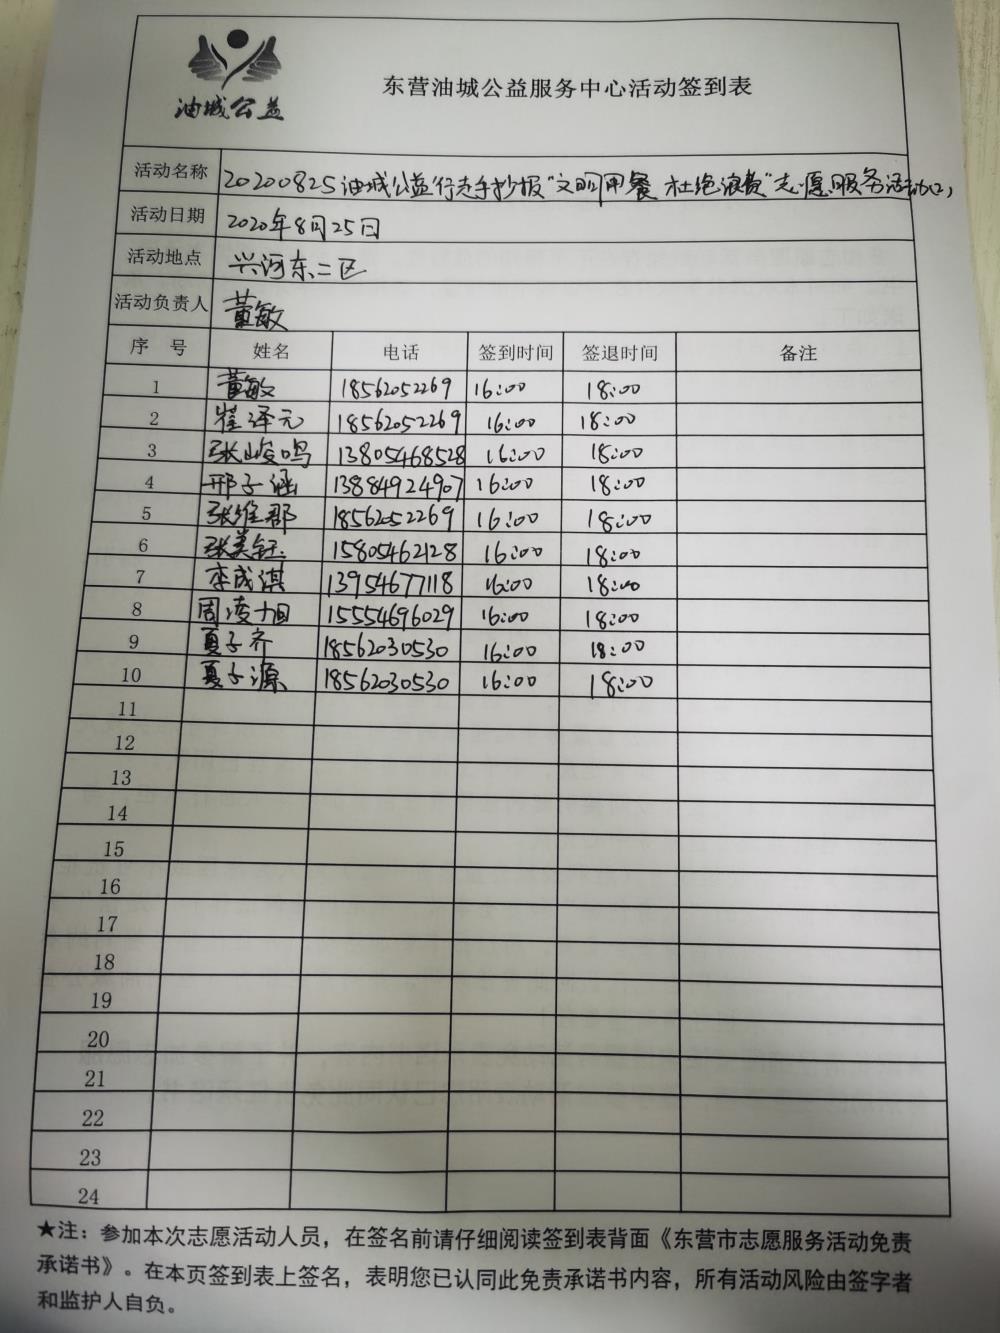 油城公益
东营油城公益服务中心活动签到表
活动名称 20200825油城公益行走手抄报"文明用餐 杜绝浪费"志愿服务活动
活动日期 2020年8月25日
活动地点 兴河东二区
活动负责人 董敏
序 号 姓名 电话 签到时间 签退时间 备注
1 董敏 18562052269 16:00 18:00
2 崔泽元 18562052269 16:00 18:00
3 张峻鸣 13805468528 16:00 18:00
4 邢子涵 13884924907 16:00 18:00
5 张维郡 18562052269 16:00 18:00
6 张美钰 15805462128 16:00 18:00
7 李成淇 13954677118 16:00 18:00
8 周凌旭 15554696029 16:00 18:00
9 夏子齐 18562030530 16:00 18:00
10 夏子源 18562030530 16:00 18:00
11
12
13
14
15
16
17
18
19
20
21
22
23
24
★注：参加本次志愿活动人员，在签名前请仔细阅读签到表背面《东营市志愿服务活动免责
承诺书》。在本页签到表上签名，表明您已认同此免责承诺书内容，所有活动风险由签字者
和监护人自负。